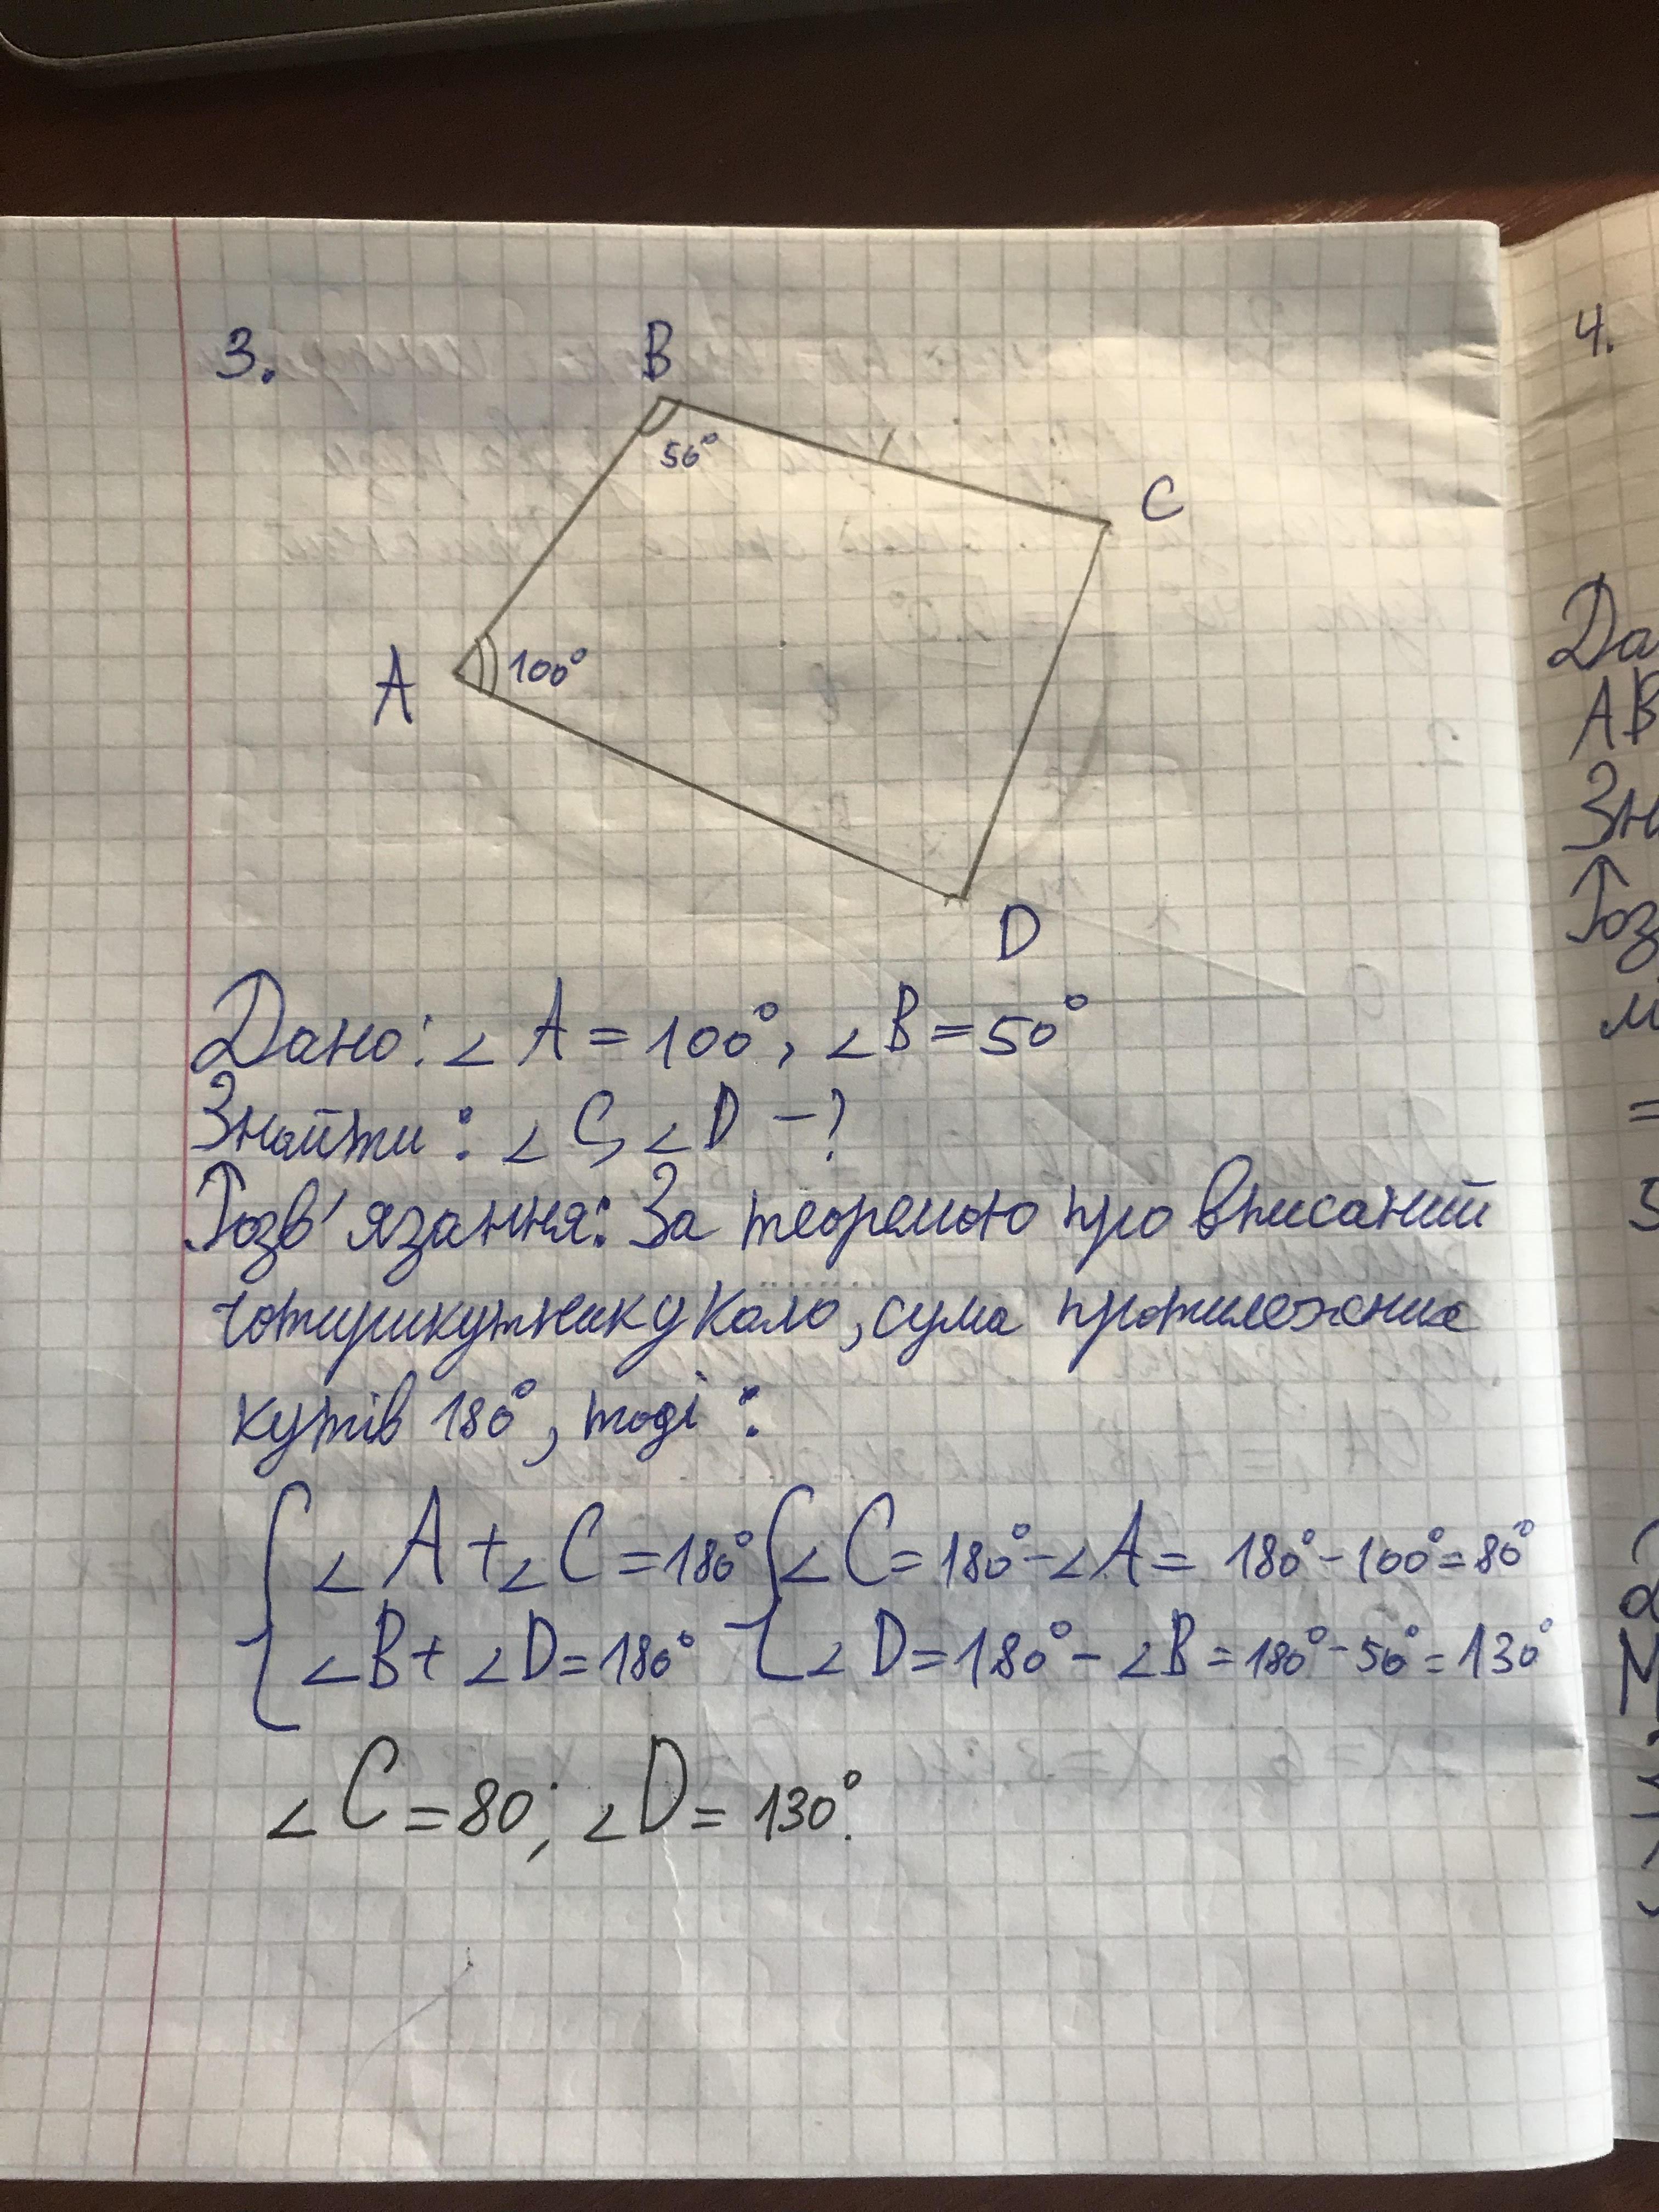 3.
B
50°
C
A
100°
D
Дано: ∠A = 100°, ∠B = 50°
Знайти: ∠C, ∠D – ?
Розв'язання: За теоремою про вписаний
чотирикутник у коло, сума протилежних
кутів 180°, тоді:
{ ∠A + ∠C = 180° { ∠C = 180° – ∠A = 180° – 100° = 80°
∠B + ∠D = 180° ∠D = 180° – ∠B = 180° – 50° = 130°
∠C = 80°; ∠D = 130°.
4.
Да
AB
Зн
Роз